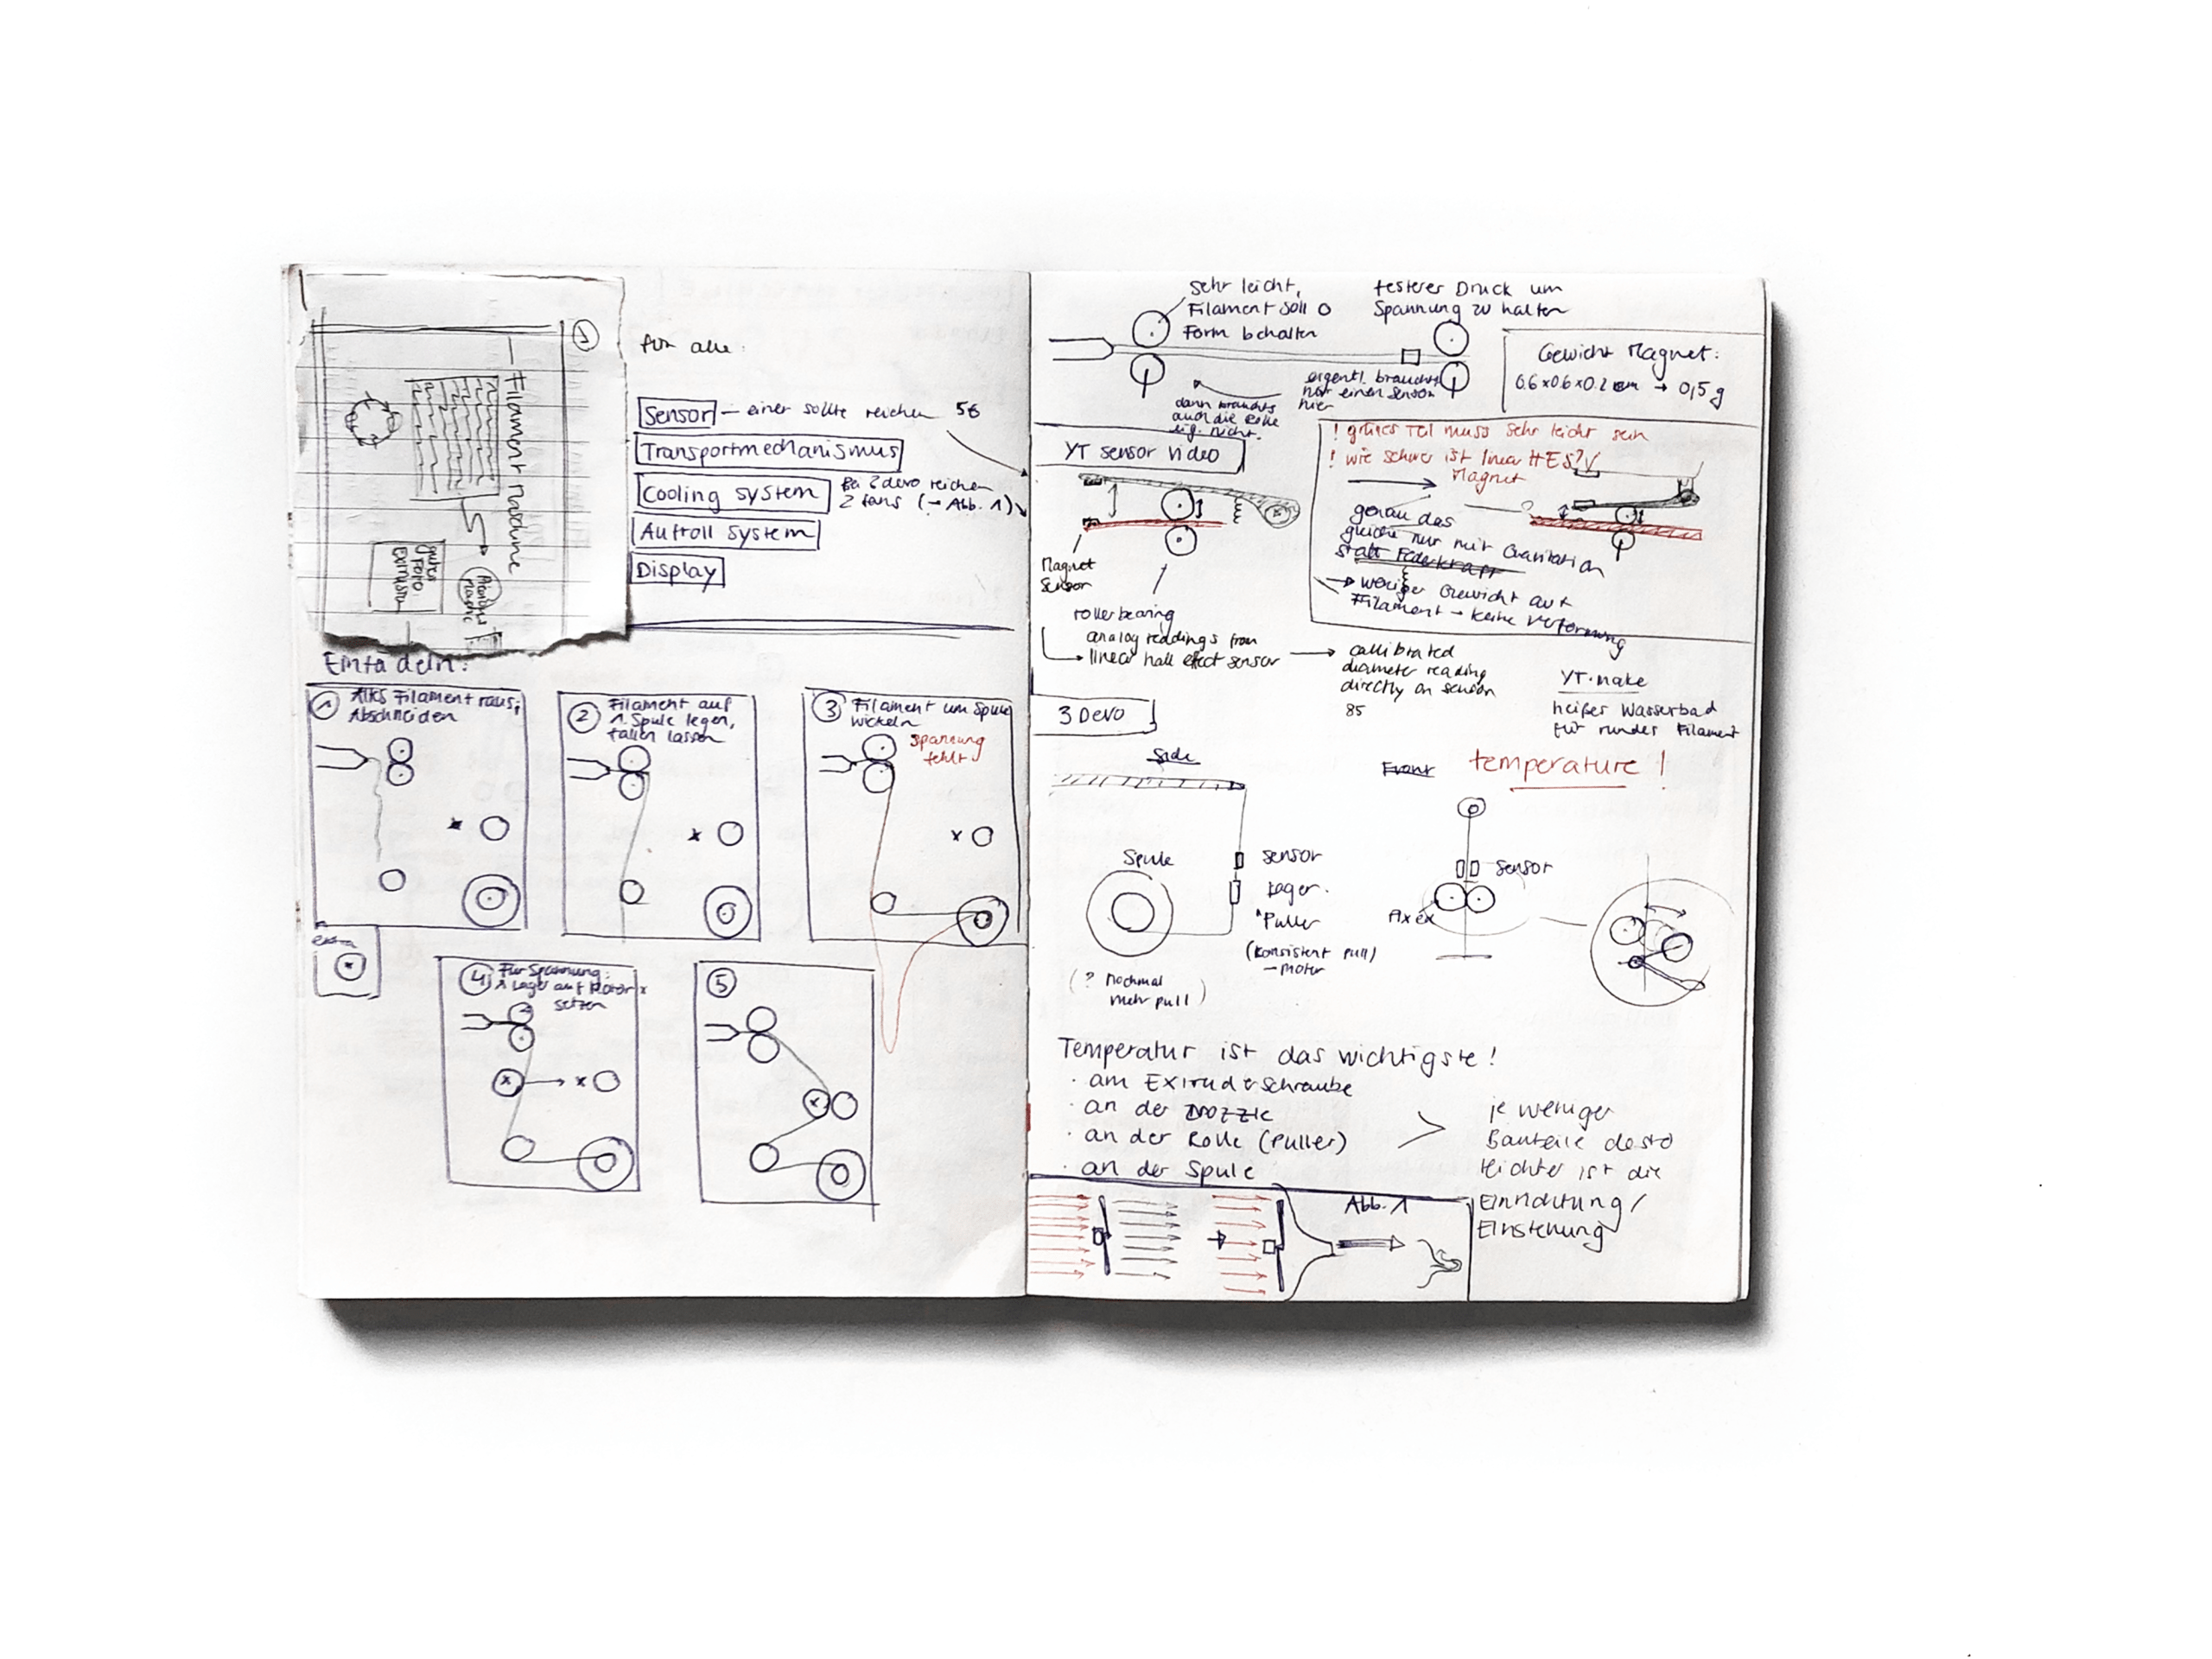 1
Filament Maschine
für alle:
Sensor — einer sollte reichen 5€
Transportmechanismus
Cooling system
Bei 3devo reichen
2 fans (→ Abb. 1)
Aufroll system
Display
Einfädeln:
1 Altes Filament raus;
Abschneiden
2 Filament auf
1. Spule legen,
fallen lassen
3 Filament um Spule
wickeln
spannung
fehlt
x
x
x
extra
x
4 Für Spannung:
1 Lager auf Motor x
setzen
x → x
5
x
Sehr leicht,
Filament soll O
Form bhalten
festerer Druck um
Spannung zu halten
Gewicht Magnet:
0.6 x 0.6 x 0.2 cm → 0,5 g
eigentl. brauchts
nur einen Sensor
hier
dann brauchts
auch die Rolle
eig. nicht.
YT sensor video
! grünes Teil muss sehr leicht sein
! wie schwer ist linear HES? √
Magnet
genau das
gleiche nur mit Gravitation
statt Federkraft
→ weniger Gewicht auf
Filament → keine Verformung
Magnet
Sensor
roller bearing
analog readdings from
linear hall effect sensor
→ callibrated
diameter reading
directly on sensor
85
YT·make
heißer Wasserbad
für runder Filament
3 Devo
Side
Front
temperature!
Spule
sensor
Lager.
Puller
(konsistent pull)
— motor
(? nochmal
mehr pull)
sensor
Fixer
Temperatur ist das wichtigste!
· am Extruderschraube
· an der Nozzle
· an der Rolle (Puller)
· an der Spule
je weniger
Bauteile desto
leichter ist die
Einrichtung/
Einstellung
Abb. 1